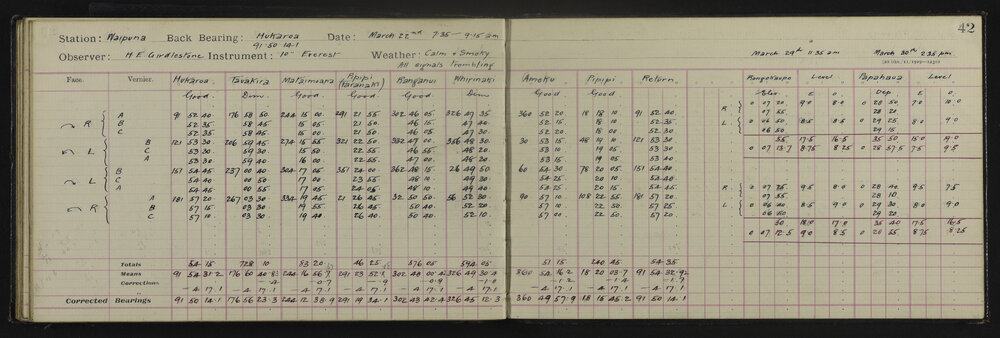 42
Station: Waipuna Back Bearing: Hukaroa Date: March 22nd 7.35 - 9.15 am
91.50 14.1
Observer: H E Girdlestone Instrument: 10" Everest Weather: Calm & Smoky
All signals trembling
March 29th 11.35 am March 30th 2.35 pm
Face. Vernier. Hukaroa Tawakira Mataimoara Pipipi (Taranaki) Ranganui Whirinaki Amoku Pipipi Return Rangokaupo Level Papahaua Level
Good. Dim. Good Good. Good. Dim Good Good Good Elev. E O. Dep. E O.
R A 91 52 40 176 58 50 244 15 00 291 21 55 302 46 05 326 47 35 360 52 20 18 18 10 91 52 40
B 52 35 58 45 15 05 21 50 46 15 47 40 52 15 18 10 52 35
C 52 35 58 45 15 00 21 50 46 05 47 30 52 20 18 00 52 30
L B 121 53 30 206 59 45 274 15 55 321 22 50 332 47 00 356 48 30 30 53 15 48 19 10 121 53 30
C 53 30 59 30 15 50 22 55 46 55 48 20 53 10 19 05 53 30
A 53 30 59 40 16 00 22 55 47 00 48 20 53 15 19 05 53 40
L B 151 54 45 237 00 40 304 17 05 351 24 00 362 48 15 26 49 50 60 54 30 78 20 05 151 54 40
C 54 40 00 50 17 00 23 55 48 10 49 30 54 25 20 10 54 40
A 54 45 00 55 17 05 24 05 48 10 49 40 54 25 20 15 54 45
R A 181 57 20 267 03 30 334 19 45 21 26 45 32 50 50 56 52 30 90 57 10 108 22 55 181 57 20
B 57 15 03 30 19 55 26 45 50 40 52 20 57 10 22 50 57 25
C 57 10 03 30 19 40 26 40 50 40 52 10 57 00 22 50 57 20
R 0 07 20 9.0 8.0 0 28 50 7.0 10.0
07 35 28 20
L 0 06 50 8.5 8.5 0 29 25 8.0 9.0
06 50 29 15
55 17.5 16.5 35 50 15.0 19.0
0 07 13.7 8.75 8.25 0 28 57.5 7.5 9.5
R 0 07 35 9.5 8.0 0 28 40 9.5 7.5
07 35 28 10
L 0 06 40 8.5 9.0 0 29 30 8.0 9.0
06 50 29 20
50 18.0 17.0 35 40 17.5 16.5
0 07 12.5 9.0 8.5 0 28 55 8.75 8.25
Totals 54 15 728 10 53 20 46 25 576 05 594 05 51 15 240 45 54 35
Means 91 54 31.2 176 60 40.83 244 16 56.7 291 23 52.1 302 48 00.4 326 49 30.4 360 54 16.2 18 20 03.7 91 54 32.92
Corrections
— 4 17.1 — 4 17.1 — 4 17.1 — 4 17.1 — 4 17.1 — 4 17.1 — 4 17.1 — 4 17.1 — 4 17.1
Corrected Bearings 91 50 14.1 176 56 23.3 244 12 38.9 291 19 34.1 302 43 42.4 326 45 12.3 360 49 57.9 18 15 45.2 91 50 14.1